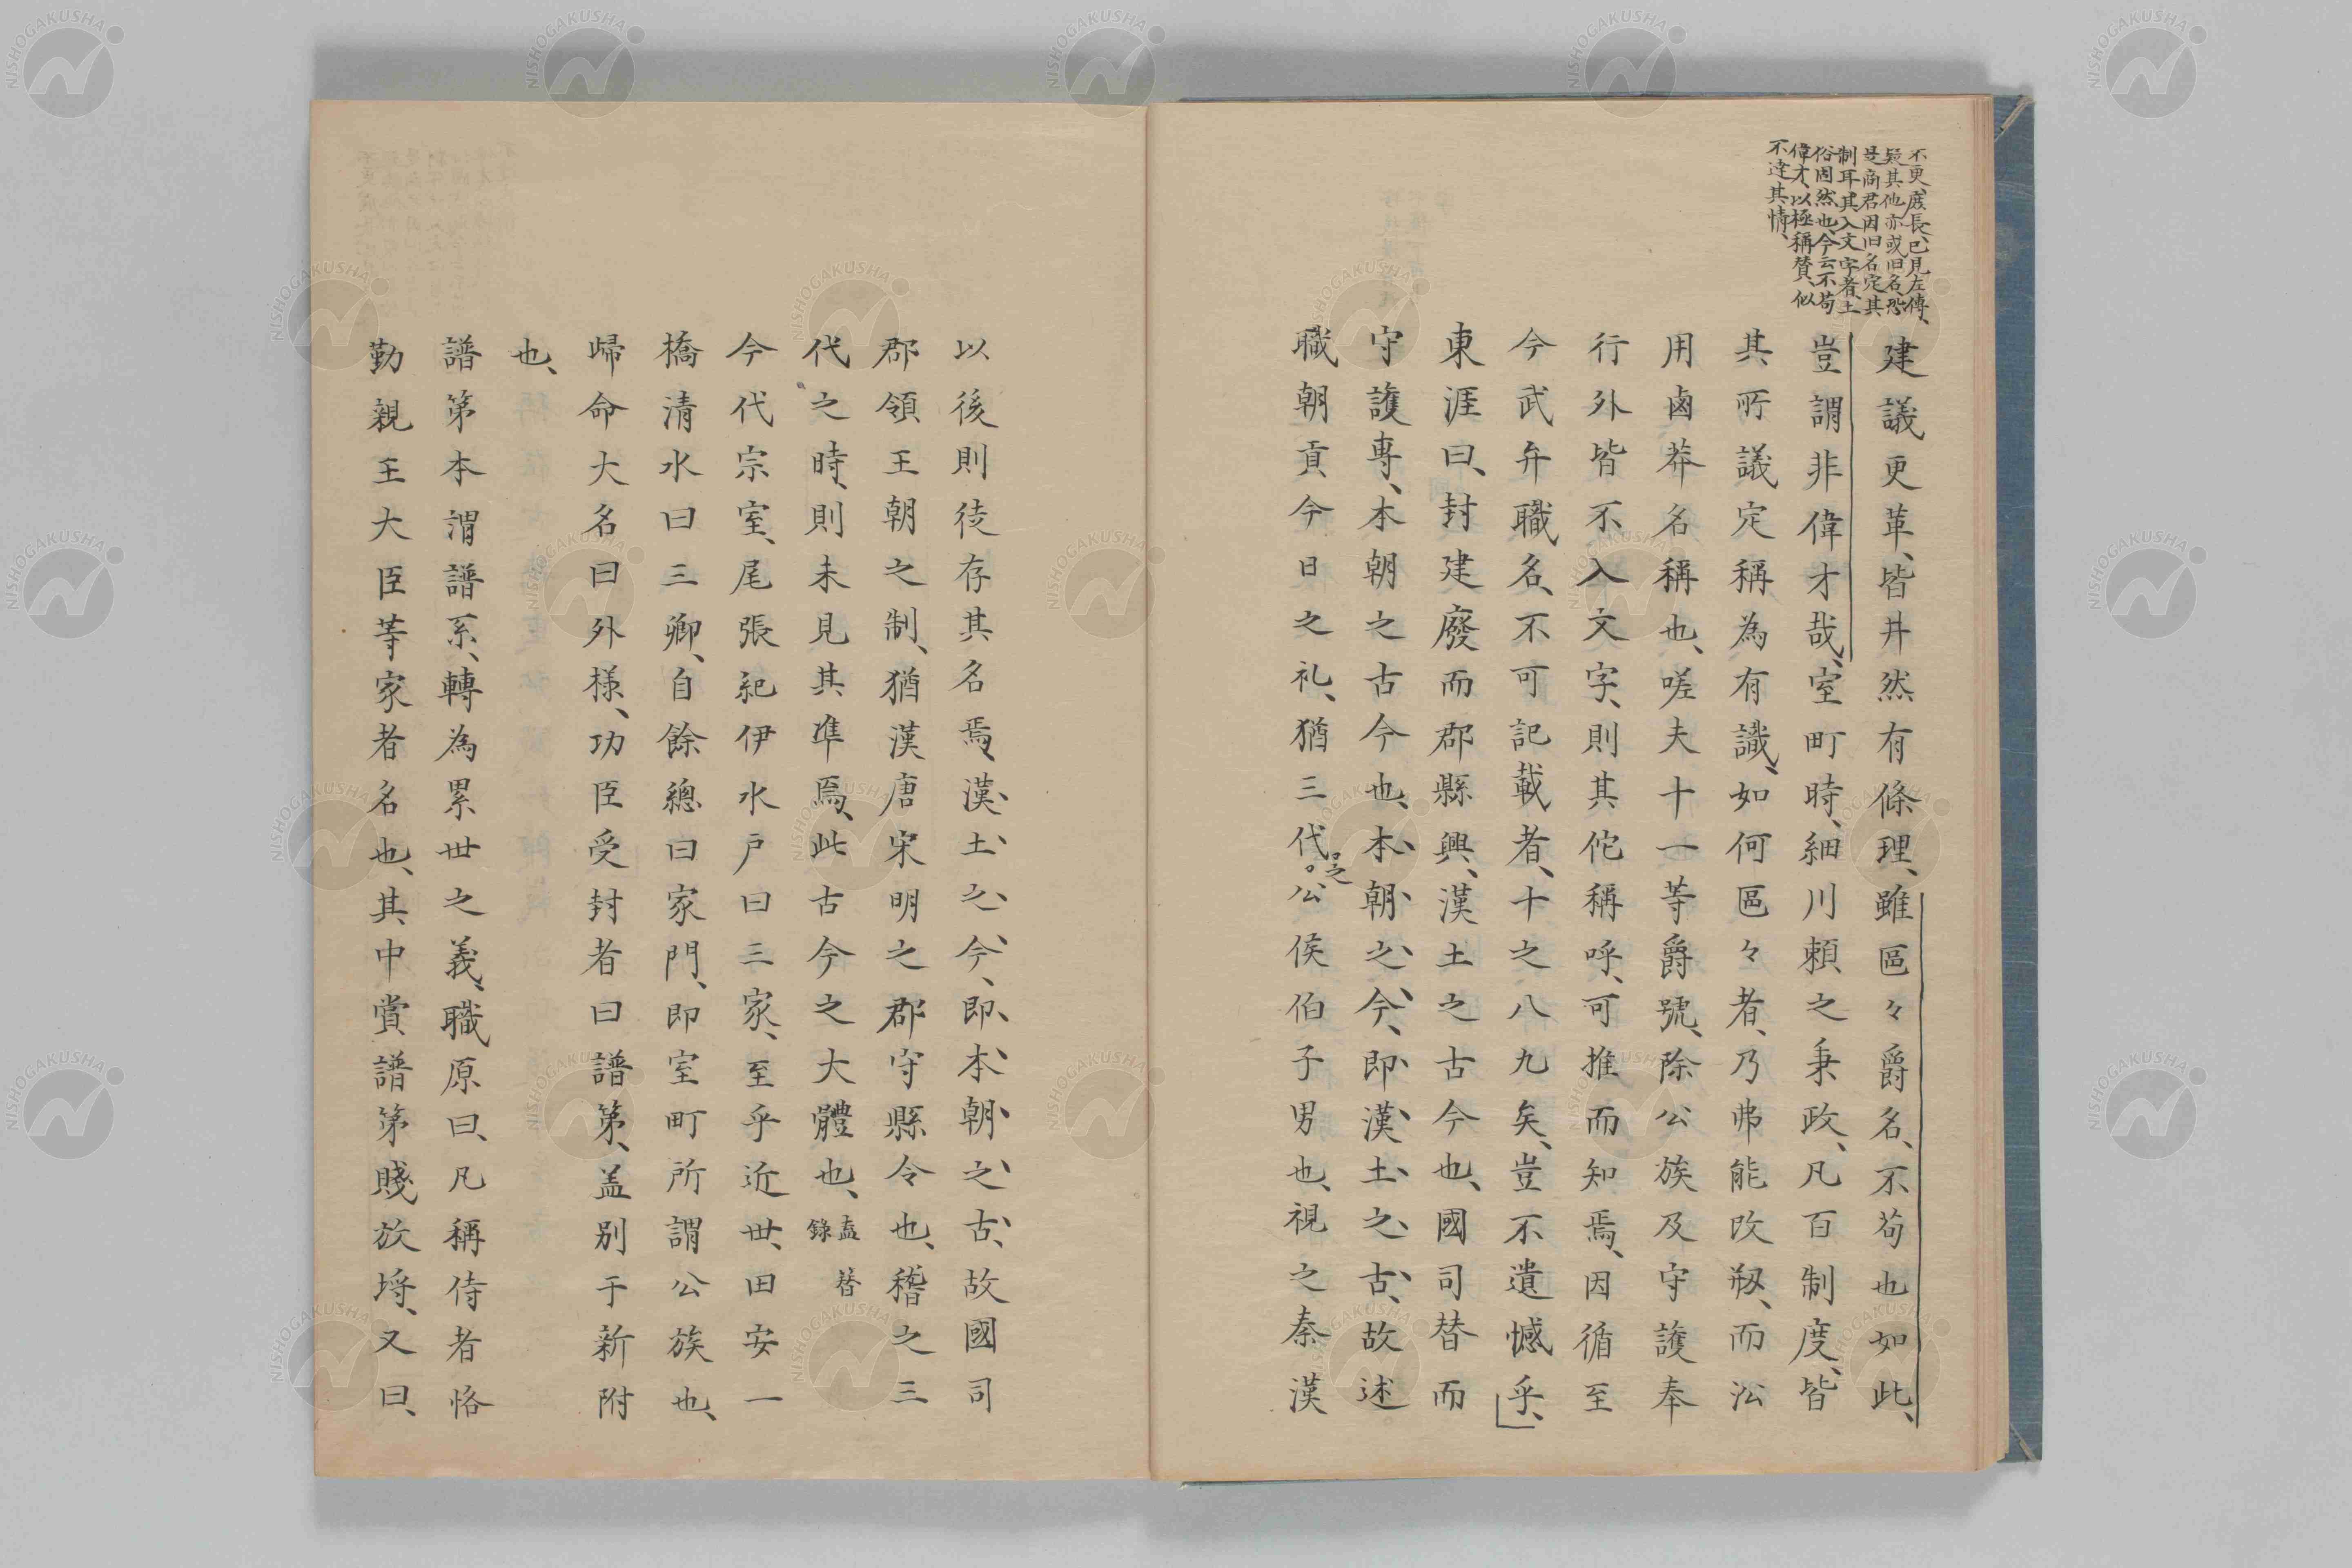 不更庻長、已見左傳、
疑其他亦或旧名、恐
是商君因旧名定其
制耳、其入文字者、土
俗固然也、今云不苟
偉才、以極稱賛、似
不達其情、
建議更革、皆井然有條理、雖區々爵名、不苟也如此、
豈謂非偉才哉、室町時、細川頼之秉政、凡百制度、皆
其所議定稱為有識、如何區々者、乃弗能改剏、而沿
用鹵莽名稱也、嗟夫十一等爵號、除公族及守護奉
行外皆不入文字、則其佗稱呼、可推而知焉、因循至
今武弁職名、不可記載者、十之八九矣、豈不遺憾乎、
東涯曰、封建廢而郡縣興、漢土之古今也、國司替而
守護專、本朝之古今也、本朝之今、即漢土之古、故述
職朝貢今日之礼、猶三代之公侯伯子男也、視之秦漢
以後則徒存其名焉、漢土之今、即本朝之古、故國司
郡領王朝之制、猶漢唐宋明之郡守縣令也、稽之三
代之時、則未見其準焉、此古今之大體也、盍簪錄
今代宗室、尾張紀伊水戸曰三家、至乎近世、田安一
橋清水曰三卿、自餘總曰家門、即室町所謂公族也、
歸命大名曰外様、功臣受封者曰譜第、盖別于新附
也、
譜第本謂譜系、轉為累世之義、職原曰、凡稱侍者恪
勤親王大臣等家者名也、其中賞譜第賤放埓、又曰、